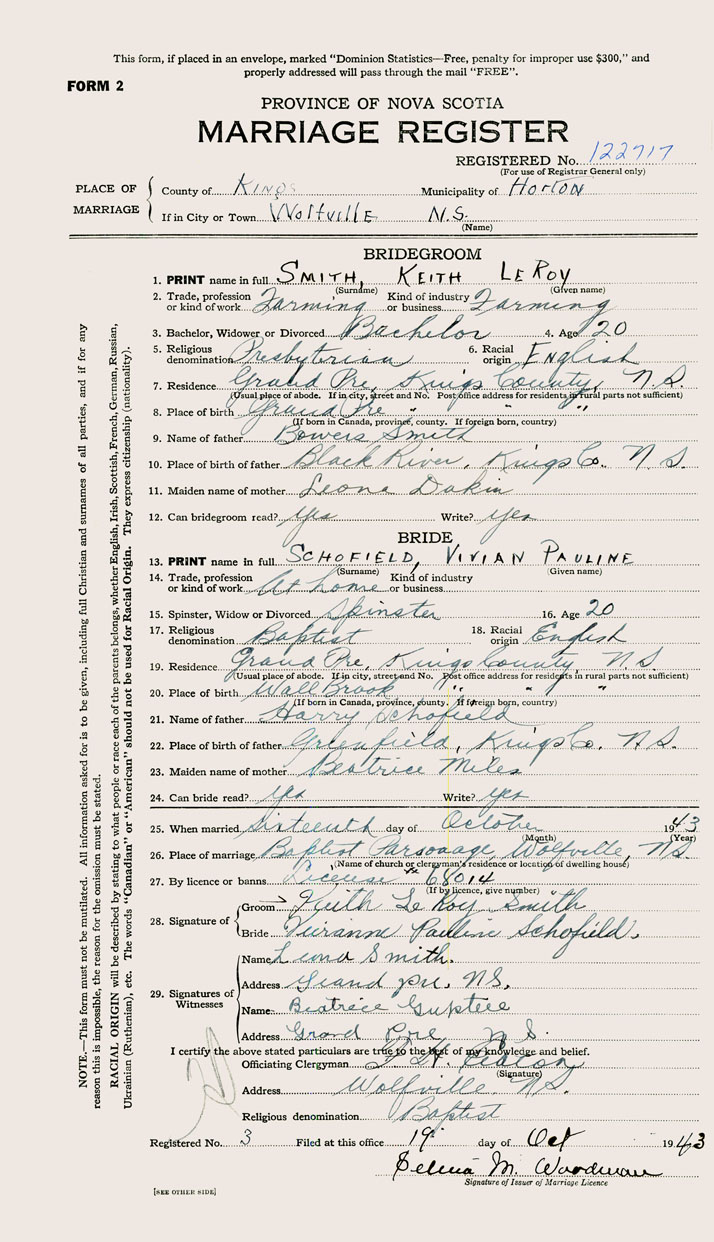 This form, if placed in an envelope, marked "Dominion Statistics—Free, penalty for improper use $300," and
properly addressed will pass through the mail "FREE".
FORM 2
PROVINCE OF NOVA SCOTIA
MARRIAGE REGISTER
REGISTERED No. 122717
(For use of Registrar General only)
PLACE OF MARRIAGE
County of Kings Municipality of Horton
If in City or Town Wolfville N.S.
(Name)
BRIDEGROOM
1. PRINT name in full SMITH, KEITH LEROY
(Surname) (Given name)
2. Trade, profession or kind of work Farming Kind of industry or business Farming
3. Bachelor, Widower or Divorced Bachelor 4. Age 20
5. Religious denomination Presbyterian 6. Racial origin English
7. Residence Grand Pre, Kings County, N.S.
(Usual place of abode. If in city, street and No. Post office address for residents in rural parts not sufficient)
8. Place of birth Grand Pre " " "
(If born in Canada, province, county. If foreign born, country)
9. Name of father Bowers Smith
10. Place of birth of father Black River, Kings Co. N.S.
11. Maiden name of mother Leona Dakin
12. Can bridegroom read? yes Write? yes
BRIDE
13. PRINT name in full SCHOFIELD, VIVIAN PAULINE
(Surname) (Given name)
14. Trade, profession or kind of work At home Kind of industry or business
15. Spinster, Widow or Divorced Spinster 16. Age 20
17. Religious denomination Baptist 18. Racial origin English
19. Residence Grand Pre, Kings County, N.S.
(Usual place of abode. If in city, street and No. Post office address for residents in rural parts not sufficient)
20. Place of birth Wall Brook " " "
(If born in Canada, province, county. If foreign born, country)
21. Name of father Harry Schofield
22. Place of birth of father Greenfield, Kings Co. N.S.
23. Maiden name of mother Beatrice Miles
24. Can bride read? yes Write? yes
25. When married Sixteenth day of October 1943
(Month) (Year)
26. Place of marriage Baptist Parsonage, Wolfville, N.S.
(Name of church or clergyman's residence or location of dwelling house)
27. By licence or banns License 68014
(If by licence, give number)
28. Signature of
Groom Keith LeRoy Smith
Bride Pauline Schofield.
29. Signatures of Witnesses
Name Leona Smith.
Address Grand pre, NS,
Name Beatrice
Address Grand Pre N S.
I certify the above stated particulars are true to the best of my knowledge and belief.
Officiating Clergyman
(Signature)
Address Wolfville. N.S.
Religious denomination Baptist
Registered No. 3 Filed at this office 19 day of Oct 1943
Selena M. Woodman
Signature of Issuer of Marriage Licence
[SEE OTHER SIDE]
NOTE.—This form must not be mutilated. All information asked for is to be given, including full Christian and surnames of all parties, and if for any
reason this is impossible, the reason for the omission must be stated.
RACIAL ORIGIN will be described by stating to what people or race each of the parents belongs, whether English, Irish, Scottish, French, German, Russian,
Ukrainian (Ruthenian), etc. The words "Canadian" or "American" should not be used for Racial Origin. They express citizenship (nationality).